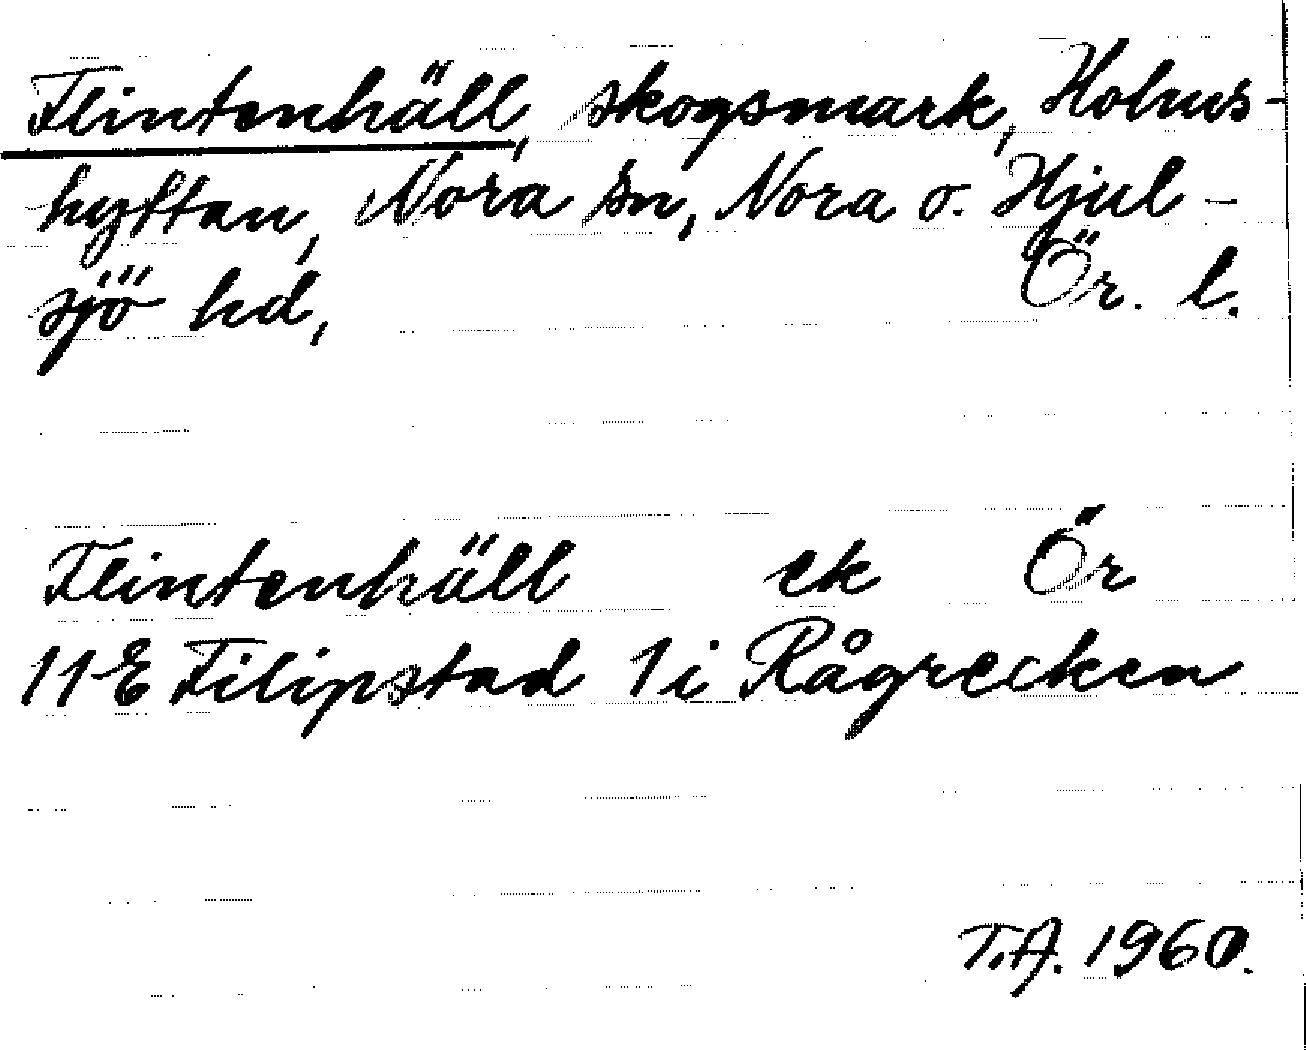 Flintenhäll, skogsmark, Holms-
hyttan, Nora sn, Nora o. Hjul-
sjö hd, Ör. l.
Flintenhäll ek Ör
11E Filipstad 1i Rågrecken
T.A. 1960.